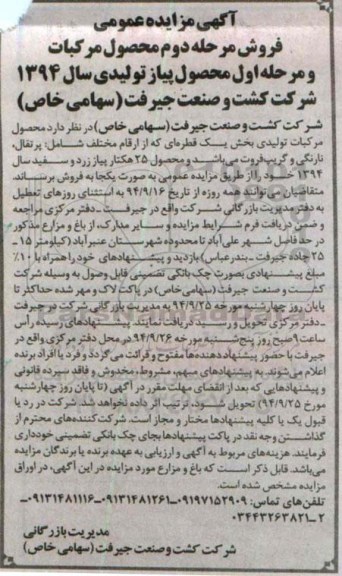 آگهی مزایده عمومی
فروش مرحله دوم محصول مرکبات
و مرحله اول محصول پیاز تولیدی سال ۱۳۹۴
شرکت کشت و صنعت جیرفت (سهامی خاص)
شرکت کشت و صنعت جیرفت (سهامی خاص) در نظر دارد محصول
مرکبات تولیدی بخش یک قطره‌ای که از ارقام مختلف شامل: پرتقال،
نارنگی و گریپ‌فروت می‌باشد و محصول ۲۵ هکتار پیاز زرد و سفید سال
۱۳۹۴ خود را از طریق مزایده عمومی به صورت یکجا به فروش برساند.
متقاضیان می‌توانند همه روزه از تاریخ ۹۴/۹/۱۶ به استثنای روزهای تعطیل
به دفتر مدیریت بازرگانی شرکت واقع در جیرفت - دفتر مرکزی مراجعه
و ضمن دریافت فرم شرایط مزایده و سایر مدارک، از باغ و مزارع مذکور
در حد فاصل شهر علی‌آباد تا محدوده شهرستان عنبرآباد (کیلومتر ۱۵-
۲۵ جاده جیرفت - بندرعباس) بازدید و پیشنهادهای خود را همراه با ۱۰٪
مبلغ پیشنهادی بصورت چک بانکی تضمینی قابل وصول به وسیله شرکت
کشت و صنعت جیرفت (سهامی خاص) در پاکت لاک و مهر شده حداکثر تا
پایان روز چهارشنبه مورخه ۹۴/۹/۲۵ به مدیریت بازرگانی شرکت در جیرفت
- دفتر مرکزی تحویل و رسید دریافت نمایند. پیشنهادهای رسیده رأس
ساعت ۹ صبح روز پنج‌شنبه مورخه ۹۴/۹/۲۶ در محل دفتر مرکزی واقع در
جیرفت با حضور پیشنهاد دهنده‌ها مفتوح و قرائت می‌گردد و فرد یا افراد برنده
اعلام می‌شوند. به پیشنهادهای مبهم، مشروط، مخدوش و فاقد سپرده قانونی
و پیشنهادهایی که بعد از انقضای مهلت مقرر در آگهی (تا پایان روز چهارشنبه
مورخ ۹۴/۹/۲۵) تحویل شود، ترتیب اثر داده نخواهد شد. شرکت در رد یا
قبول یک یا کلیه پیشنهادها مختار و مجاز است. شرکت‌کننده‌های محترم از
گذاشتن وجه نقد در پاکت پیشنهادها بجای چک بانکی تضمینی خودداری
فرمایند. هزینه‌های مربوط به آگهی و ارزیابی به عهده برنده یا برندگان مزایده
می‌باشد. قابل ذکر است که باغ و مزارع مورد مزایده در این آگهی، در اوراق
مزایده مشخص شده است.
تلفن‌های تماس: ۰۹۱۹۷۱۵۲۹۰۹-۰۹۱۳۱۴۸۱۲۶۱-۰۹۱۳۱۴۸۱۱۱۶-
۰۳۴۴۳۲۶۳۸۲۱-۲
مدیریت بازرگانی
شرکت کشت و صنعت جیرفت (سهامی خاص)